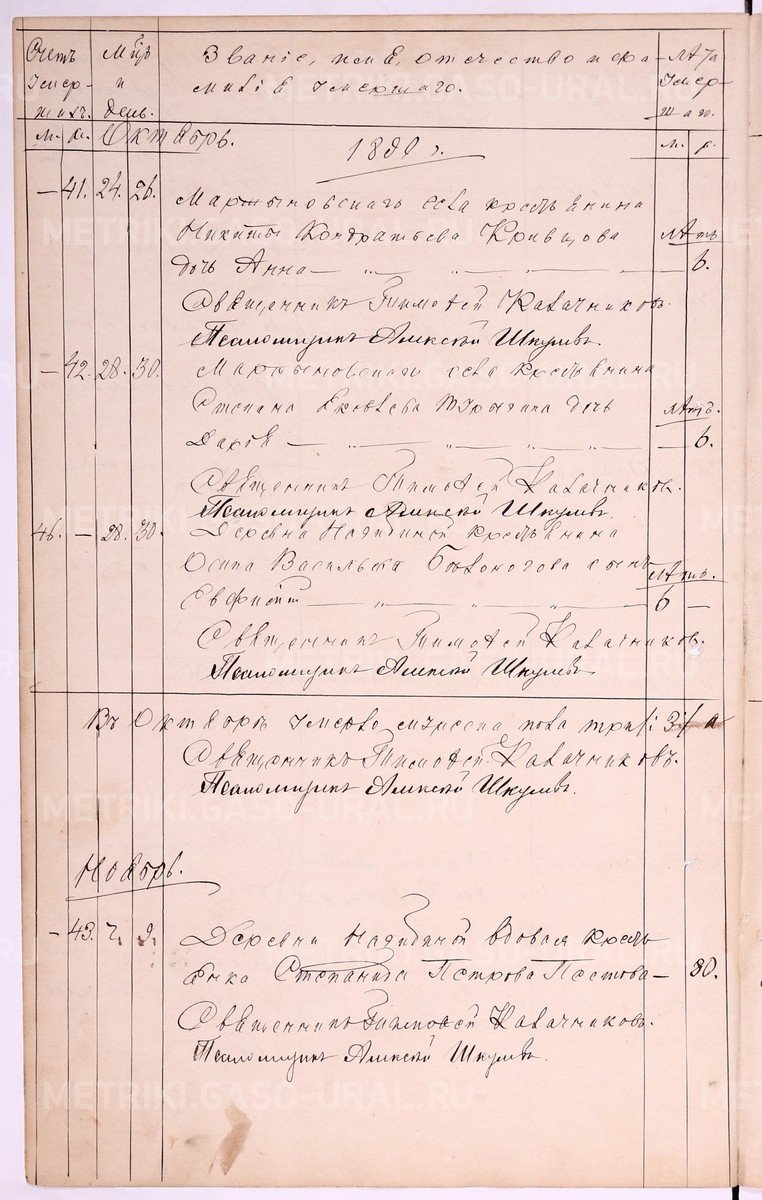 Счетъ умер-шихъ. Мѣц и день. Званіе, имя, отчество и фа- лѣта
миліе умершаго. умер-шаго.
м. ж. Октябрь. м. ж.
1890 г.
— 41. 24. 26. Мартыновскаго села крестьянина
Никиты Кондратьева Кривцова лѣтъ
дочь Анна — „ — „ — „ — „ — 6.
Священникъ Тимоѳей Калачниковъ.
Псаломщикъ Алексѣй Шкулевъ.
— 42. 28. 30. Мартыновскаго села крестьянина
Степана Яковлева дочь лѣтъ.
Дарія — „ — „ — „ — 6.
Священникъ Тимоѳей Калачниковъ.
Псаломщикъ Алексѣй Шкулевъ.
46. — 28. 30. Деревни крестьянина
Осипа Васильева Бѣлоногова сынъ лѣтъ.
— „ — „ — „ — 6 —
Священникъ Тимоѳей Калачниковъ.
Псаломщикъ Алексѣй Шкулевъ.
Въ Октябрѣ умерло мужеска пола три /: 3 :/
Священникъ Тимоѳей Калачниковъ.
Псаломщикъ Алексѣй Шкулевъ.
Ноябрь.
— 43. 7. 9. Деревни вдовая кресть
янка Степанида Петрова — 80.
Священникъ Тимоѳей Калачниковъ.
Псаломщикъ Алексѣй Шкулевъ.
METRIKI.GASO-URAL.RU